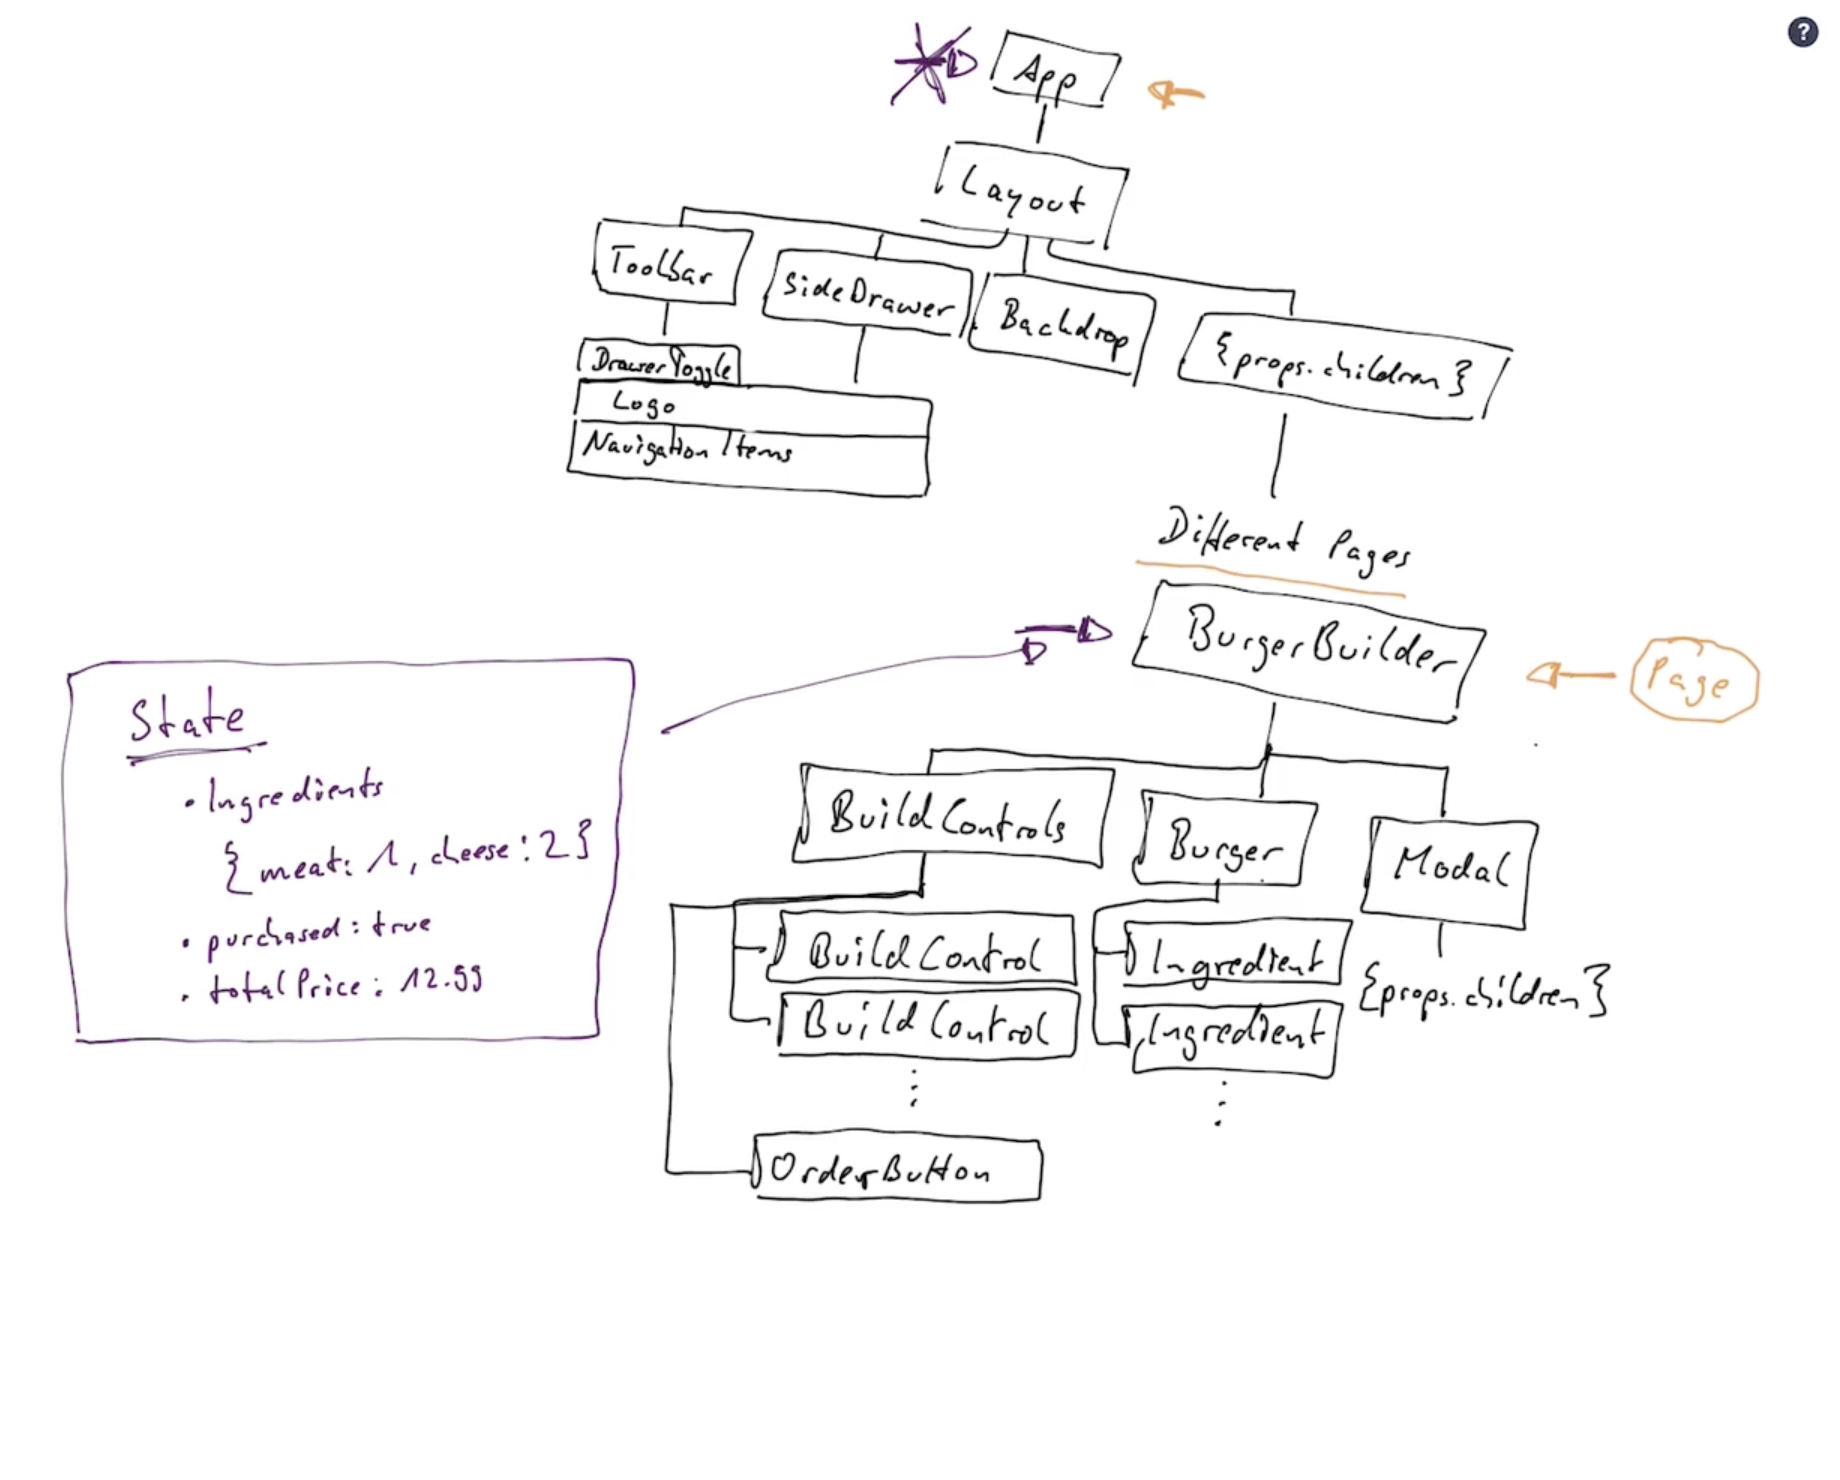 ?
App
Layout
Toolbar
SideDrawer
Backdrop
{props.children}
DrawerToggle
Logo
Navigation Items
Different Pages
BurgerBuilder
Page
State
• Ingredients
{meat: 1, cheese: 2}
• purchased: true
• totalPrice: 12.99
BuildControls
Burger
Modal
BuildControl
Ingredient
{props.children}
BuildControl
Ingredient
OrderButton